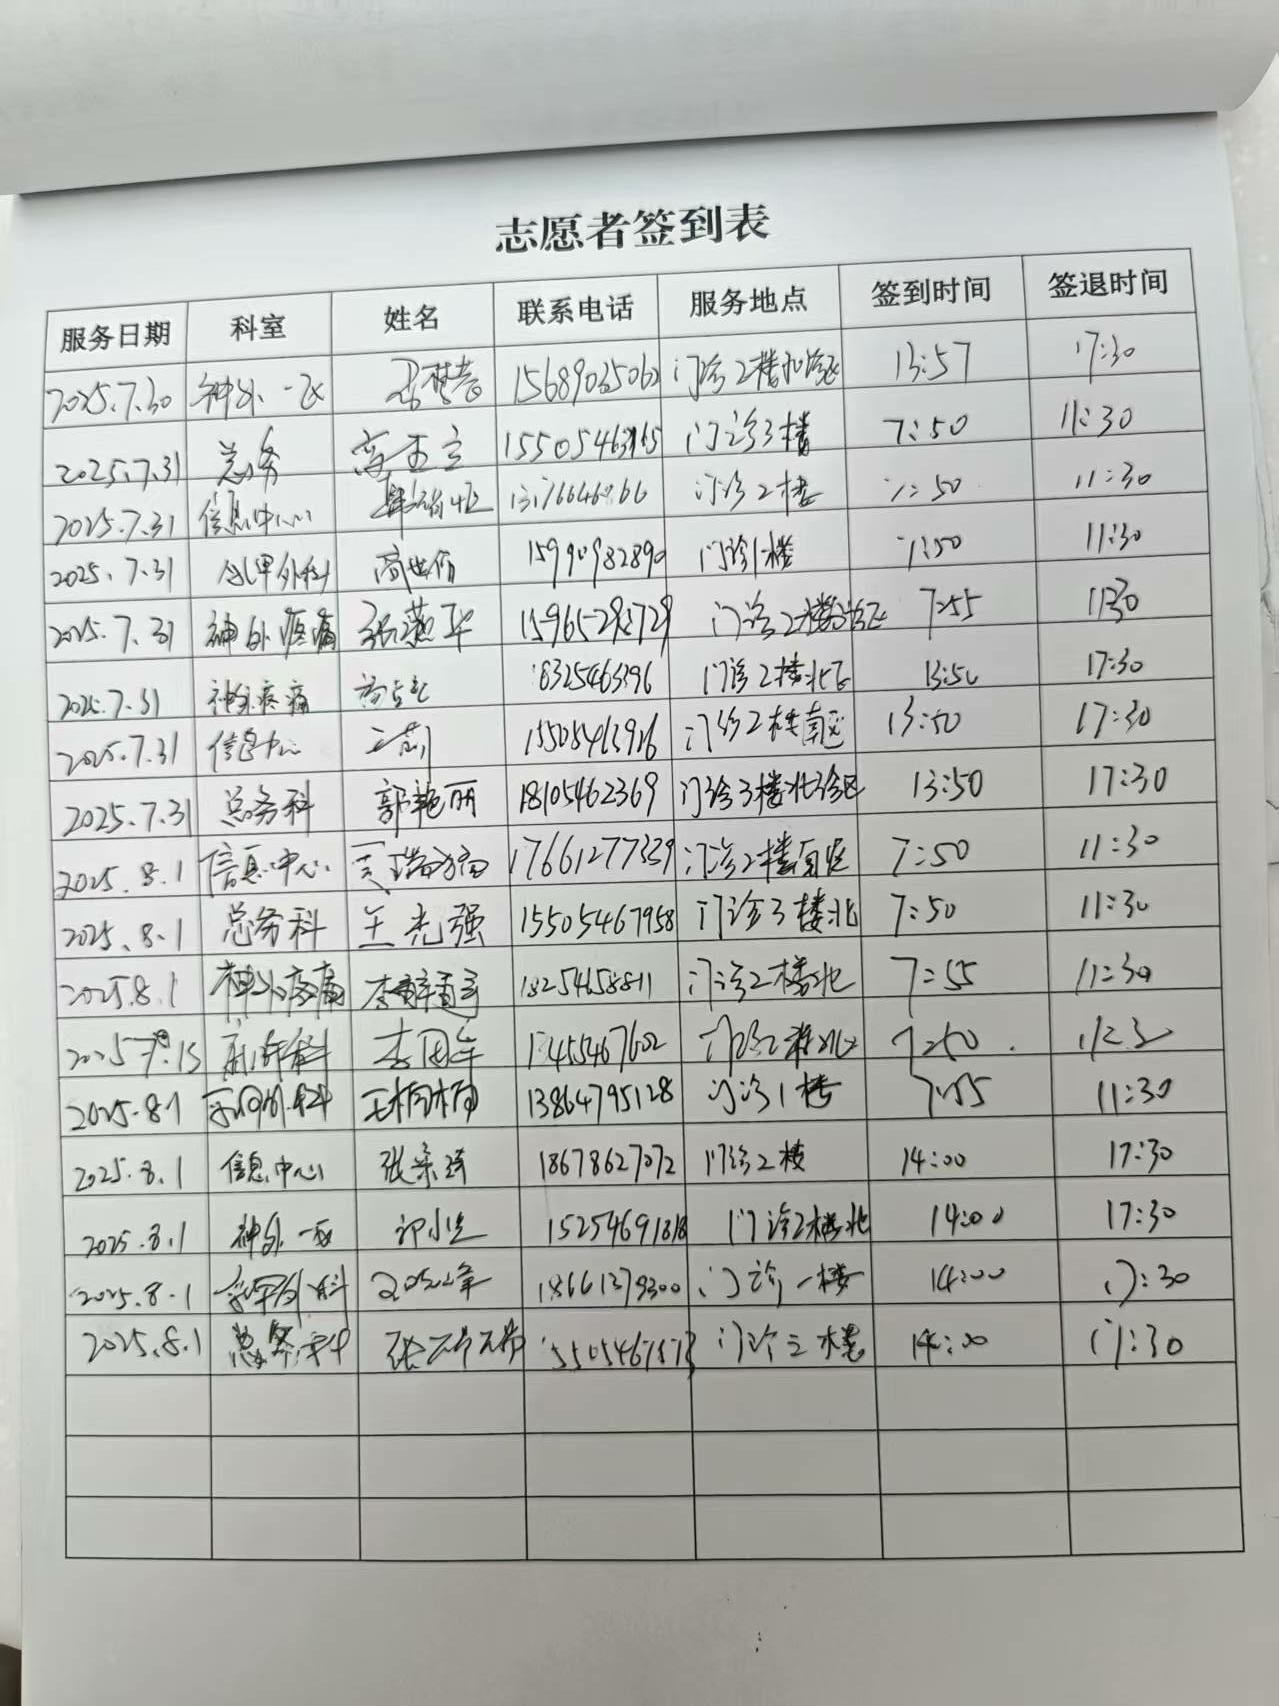 志愿者签到表
服务日期 科室 姓名 联系电话 服务地点 签到时间 签退时间
2025.7.30 神外一区 15689065062 门诊2楼北诊区 13:57 17:30
2025.7.31 总务 高玉立 门诊3楼 7:50 11:30
2025.7.31 信息中心 门诊2楼 7:50 11:30
2025.7.31 乳甲外科 15990982890 门诊1楼 7:50 11:30
2025.7.31 神外疼痛 张燕华 门诊2楼北诊区 7:55 11:30
2025.7.31 神外疼痛 18325463396 门诊2楼北区 13:50 17:30
2025.7.31 信息中心 王莉 15505463926 门诊2楼南区 13:50 17:30
2025.7.31 总务科 郭艳丽 18105462369 门诊3楼北诊区 13:50 17:30
2025.8.1 信息中心 17661277339 门诊2楼南区 7:50 11:30
2025.8.1 总务科 王光强 15505467958 门诊3楼北 7:50 11:30
2025.8.1 神外疼痛 18254658811 门诊2楼北 7:55 11:30
门诊2楼北 7:50
2025.8.1 王楠楠 13864795128 门诊1楼 7:55 11:30
2025.8.1 信息中心 18678627072 门诊2楼 14:00 17:30
2025.8.1 神外一区 15254691818 门诊2楼北 14:00 17:30
2025.8.1 18661379300 门诊一楼 14:00 17:30
2025.8.1 总务科 门诊三楼 14:00 17:30